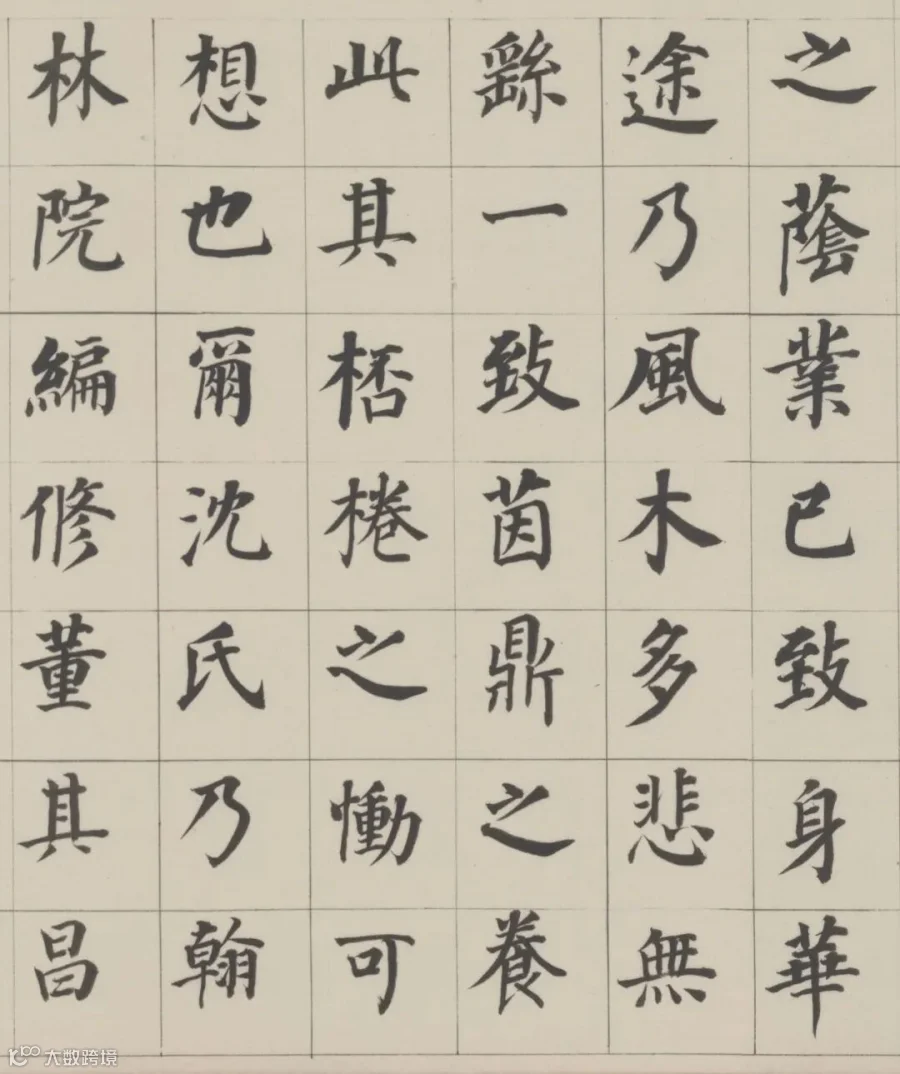 之蔭業已致身華
途乃風木多悲無
繇一致茵鼎之養
此其桮棬之慟可
想也爾沈氏乃翰
林院編修董其昌
大数跨境